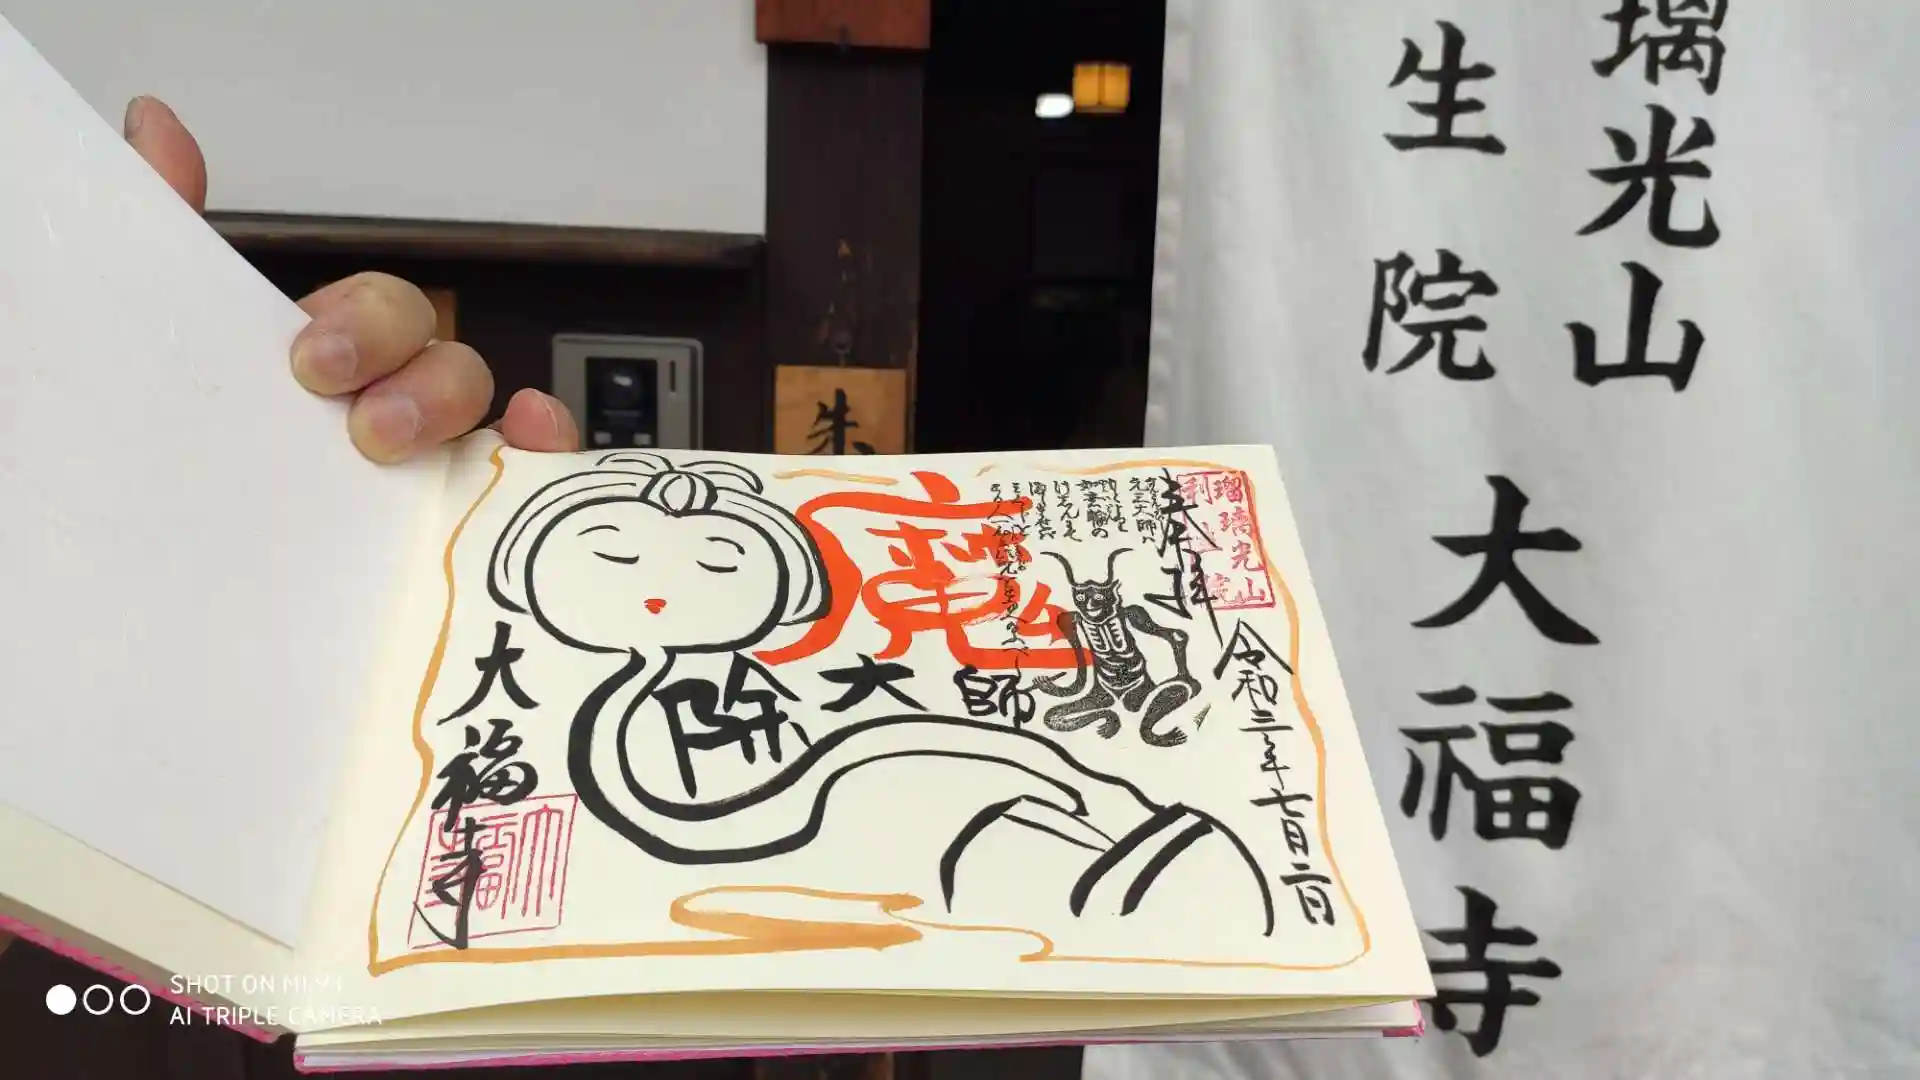 璃光山
生院
大福寺
朱
魔
除大師
奉拝
令和三年七月二日
大福寺
瑠璃光山
元三大師ハ
如意輪の
SHOT ON MI 9T
AI TRIPLE CAMERA